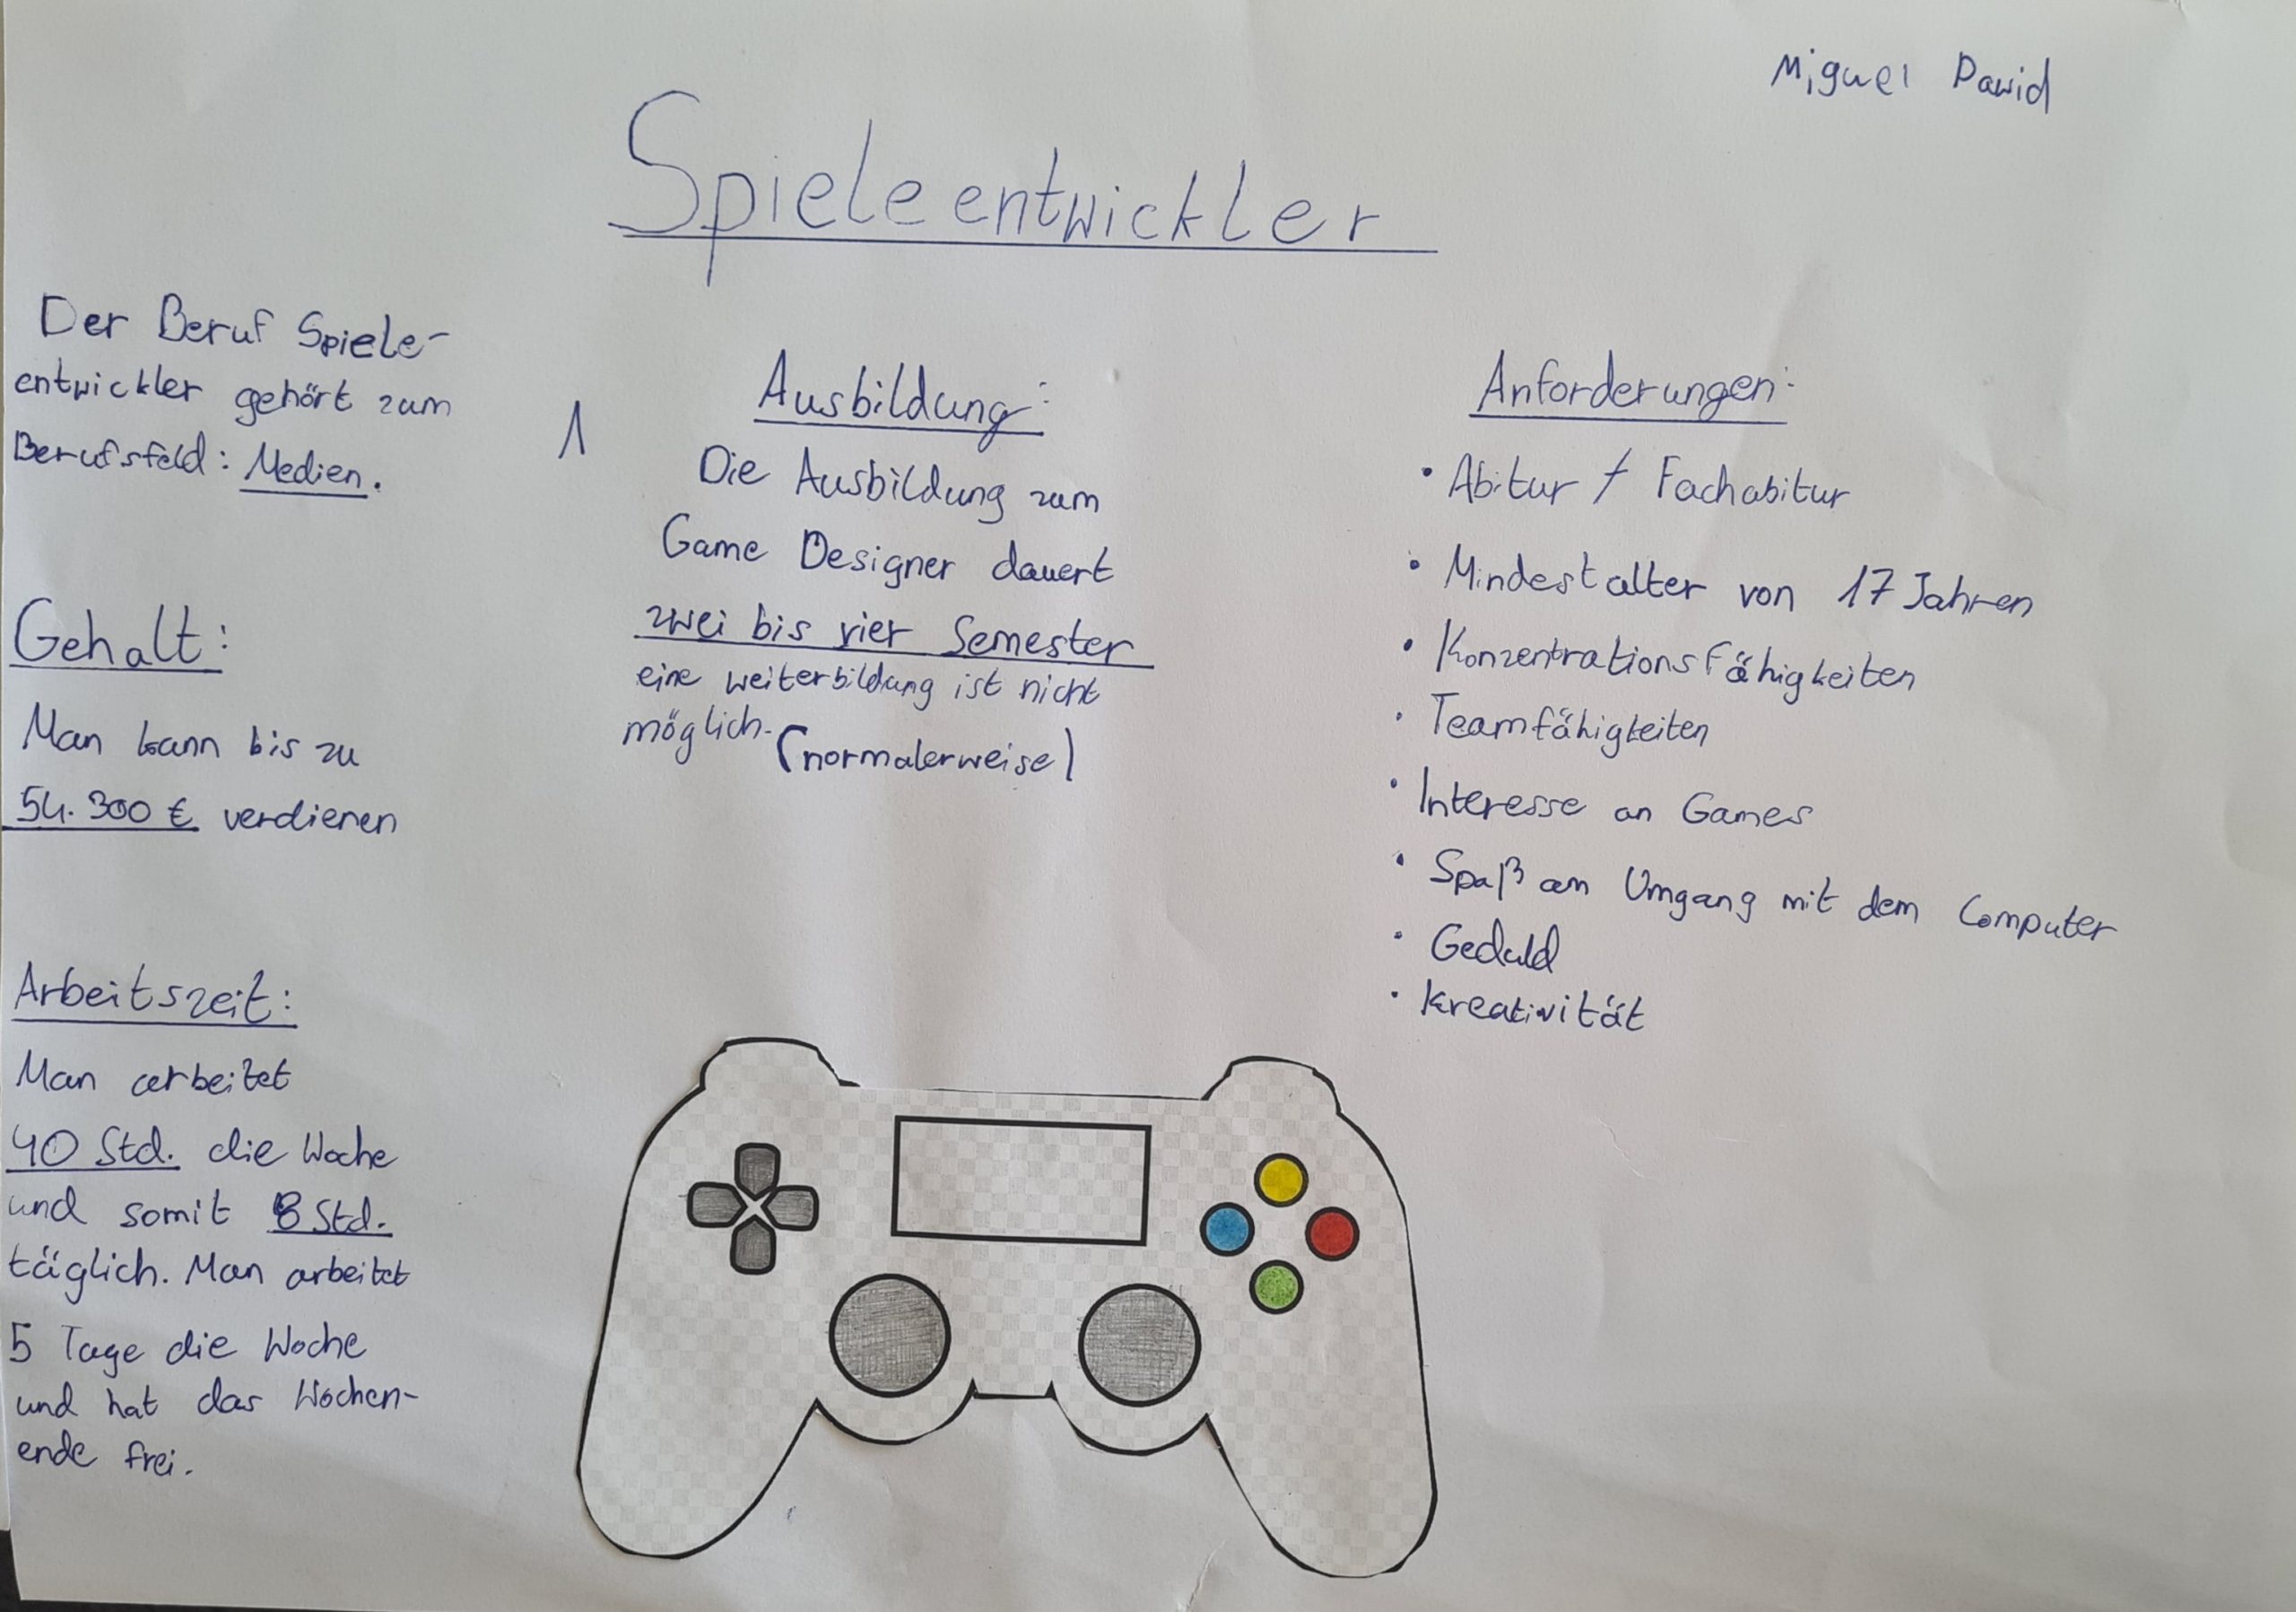 Miguel Dawid
Spieleentwickler
Der Beruf Spiele-
entwickler gehört zum
Berufsfeld: Medien.
Gehalt:
Man kann bis zu
54.300 € verdienen
Arbeitszeit:
Man arbeitet
40 Std. die Woche
und somit 8 Std.
täglich. Man arbeitet
5 Tage die Woche
und hat das Wochen-
ende frei.
1
Ausbildung:
Die Ausbildung zum
Game Designer dauert
zwei bis vier Semester
eine weiterbildung ist nicht
möglich. (normalerweise)
Anforderungen:
• Abitur / Fachabitur
• Mindestalter von 17 Jahren
• Konzentrationsfähigkeiten
• Teamfähigkeiten
• Interesse an Games
• Spaß am Umgang mit dem Computer
• Geduld
• Kreativität